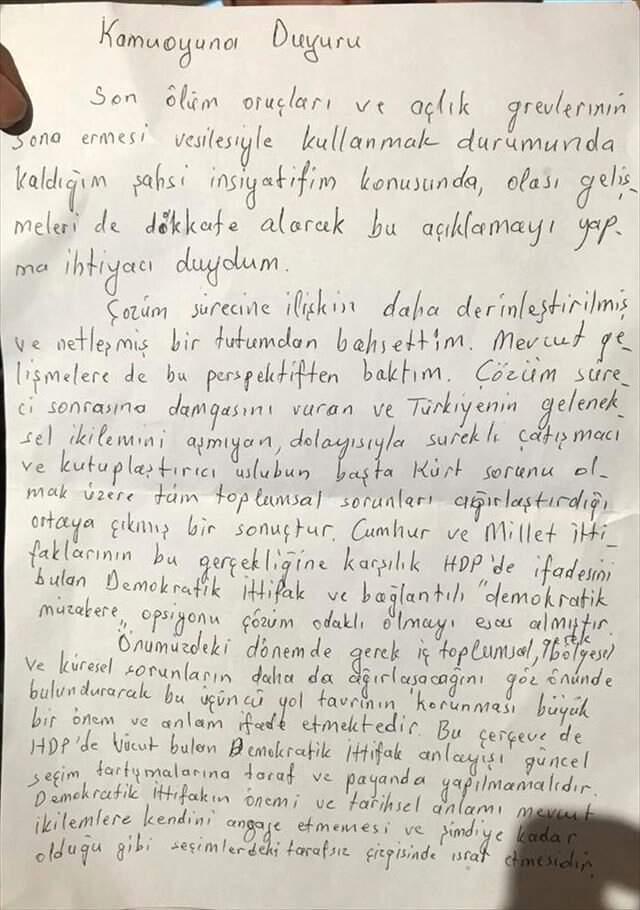 Kamuoyuna Duyuru
Son ölüm oruçları ve açlık grevlerinin
sona ermesi vesilesiyle kullanmak durumunda
kaldığım şahsi insiyatifim konusunda, olası geliş-
meleri de dikkate alarak bu açıklamayı yap-
ma ihtiyacı duydum.
Çözüm sürecine ilişkin daha derinleştirilmiş
ve netleşmiş bir tutumdan bahsettim. Mevcut ge-
lişmelere de bu perspektiften baktım. Çözüm süre-
ci sonrasına damgasını vuran ve Türkiyenin gelenek-
sel ikilemini aşmıyan, dolayısıyla sürekli çatışmacı
ve kutuplaştırıcı uslubun başta Kürt sorunu ol-
mak üzere tüm toplumsal sorunları ağırlaştırdığı
ortaya çıkmış bir sonuçtur. Cumhur ve Millet İtti-
faklarının bu gerçekliğine karşılık HDP'de ifadesini
bulan Demokratik İttifak ve bağlantılı "demokratik
müzakere" opsiyonu çözüm odaklı olmayı esas almıştır.
Önümüzdeki dönemde gerek iç toplumsal, gerek bölgesel
ve küresel sorunların daha da ağırlaşacağını göz önünde
bulundurarak bu üçüncü yol tavrının korunması büyük
bir önem ve anlam ifade etmektedir. Bu çerçeve de
HDP'de vücut bulan Demokratik İttifak anlayışı güncel
seçim tartışmalarına taraf ve payanda yapılmamalıdır.
Demokratik İttifakın önemi ve tarihsel anlamı mevcut
ikilemlere kendini angaje etmemesi ve şimdiye kadar
olduğu gibi seçimlerdeki tarafsız çizgisinde ısrar etmesidir.